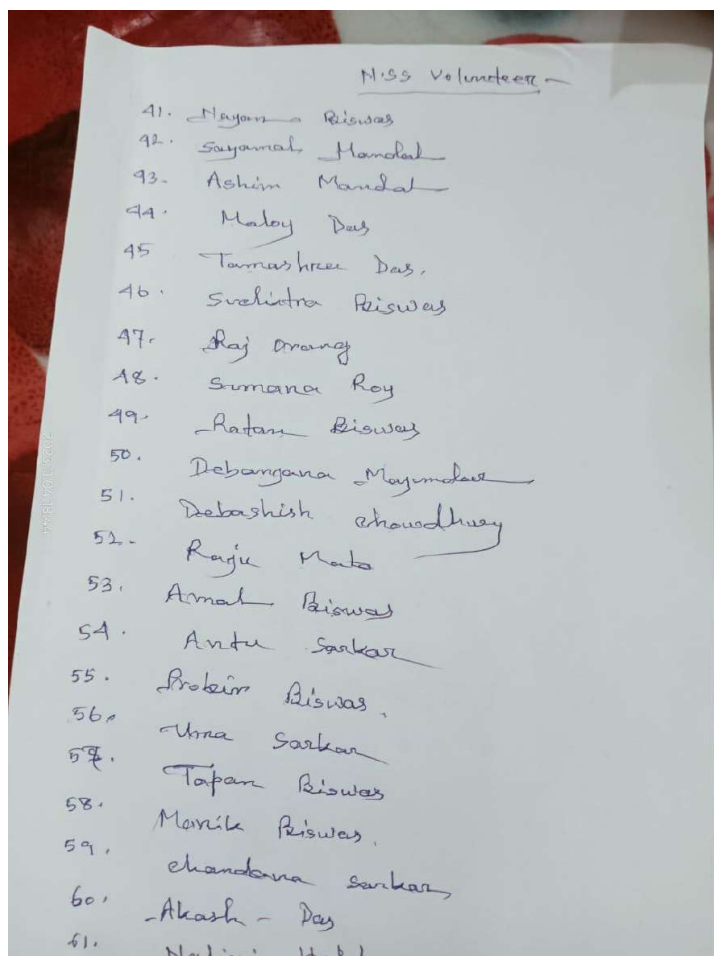 N.SS Volunteer
41. Nayan Biswas
42. Sayamal Mandal
43. Ashim Mandal
44. Maloy Das
45 Tamashree Das.
46. Suchintra Biswas
47. Raj Orang
48. Sumana Roy
49. Ratan Biswas
50. Debangana Majumdar
51. Debashish Chowdhury
52. Raju Mato
53. Amal Biswas
54. Antu Sarkar
55. Probin Biswas.
56. Uma Sarkar
57. Tapan Biswas
58. Manik Biswas.
59. Chandana Sarkar
60. Akash - Das
61.